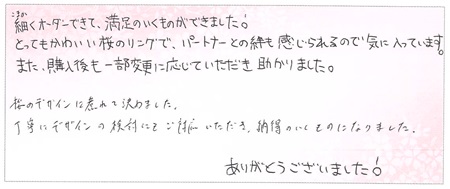 細くオーダーできて、満足のいくものができました!
とってもかわいい桜のリングで、パートナーとの絆も感じられるので気に入っています。
また、購入後も一部変更に応じていただき助かりました。
桜のデザインに惹れて決めました。
丁寧にデザインの検討にもご対応いただき、納得のいくものになりました。
ありがとうございました!